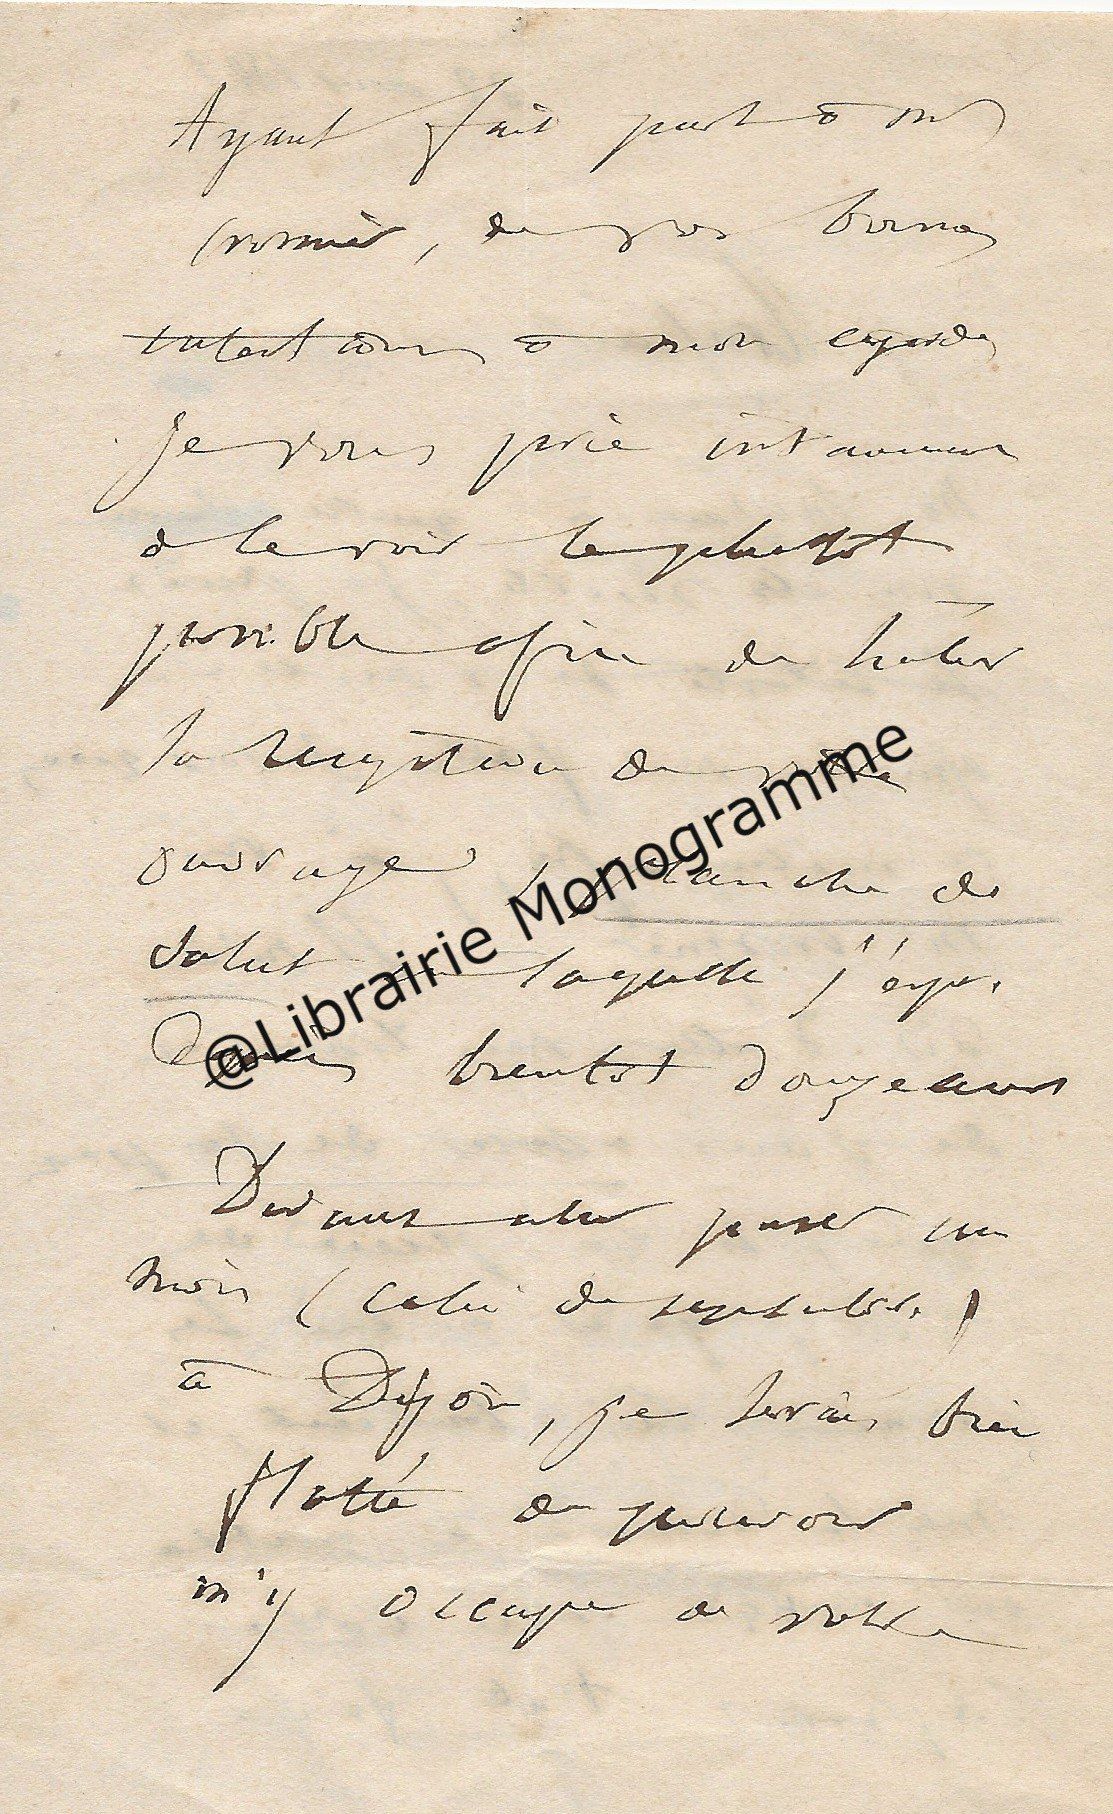 Ayant fait part à Mr
Cronier, de vos bonnes
intentions à mon égard
je vous prie instamment
de le voir le plus tôt
possible afin de hâter
la réception de votre
ouvrage la planche de
salut à laquelle j'expo.
bientôt douze ans
Devant aller passer un
mois (celui de septembre)
à Dijon, je serais bien
flatté de pouvoir
m'y occuper de votre
@Librairie Monogramme